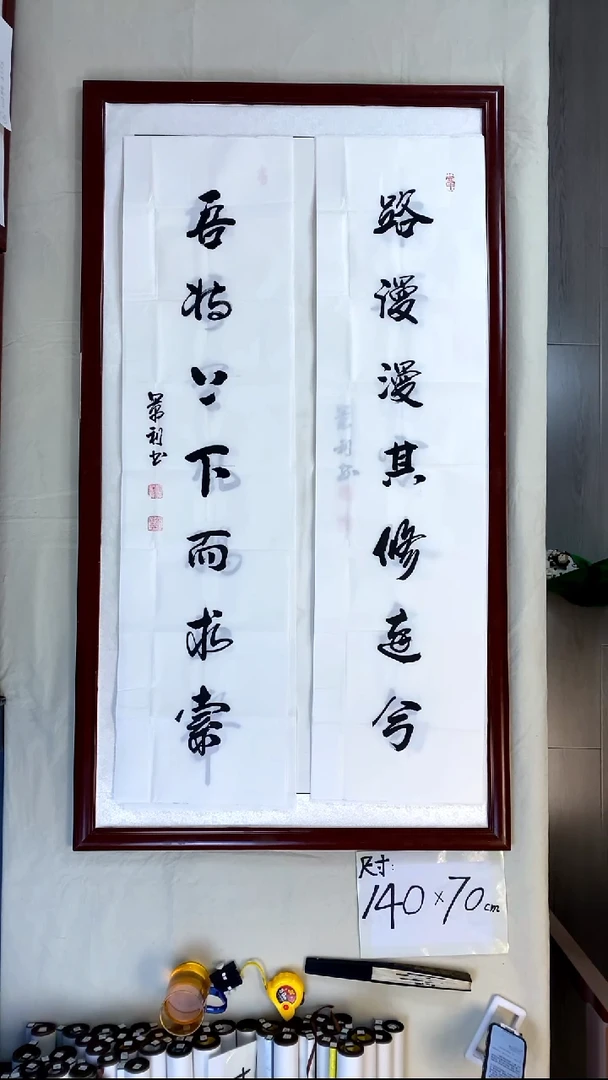 路漫漫其修远兮
吾将上下而求索
尺寸:
140×70cm